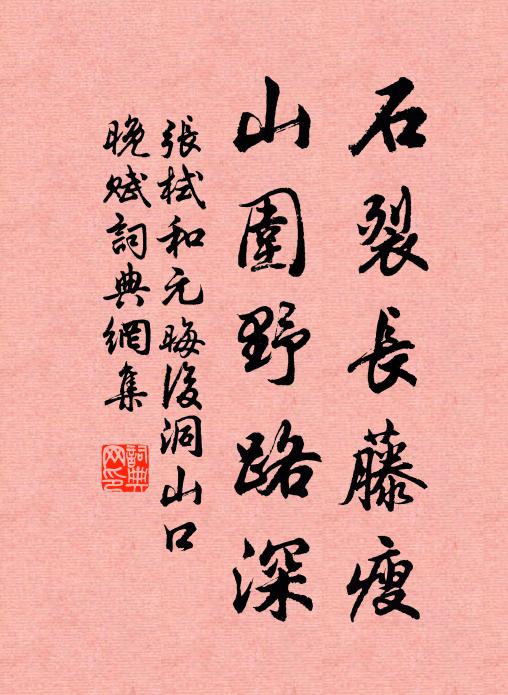 石裂長藤瘦
山圍野路深
張栻和元晦後洞山口
晚賦詞典網集
詞典
网印